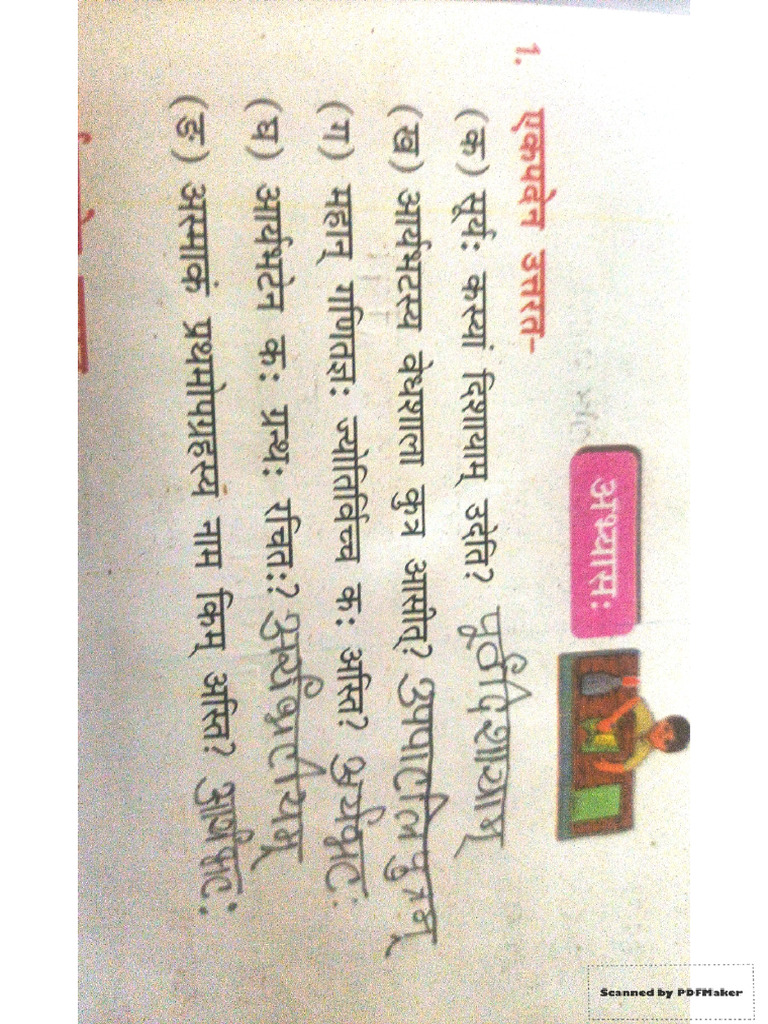 अभ्यासः
1. एकपदेन उत्तरत-
(क) सूर्यः कस्यां दिशायाम् उदेति? पूर्वदिशायाम्
(ख) आर्यभटस्य वेधशाला कुत्र आसीत्? उपपाटलिपुत्रम्
(ग) महान् गणितज्ञः ज्योतिर्विच्च कः अस्ति? आर्यभटः
(घ) आर्यभटेन कः ग्रन्थः रचितः? आर्यभटीयम्
(ङ) अस्माकं प्रथमोपग्रहस्य नाम किम् अस्ति? आर्यभटः
Scanned by PDFMaker